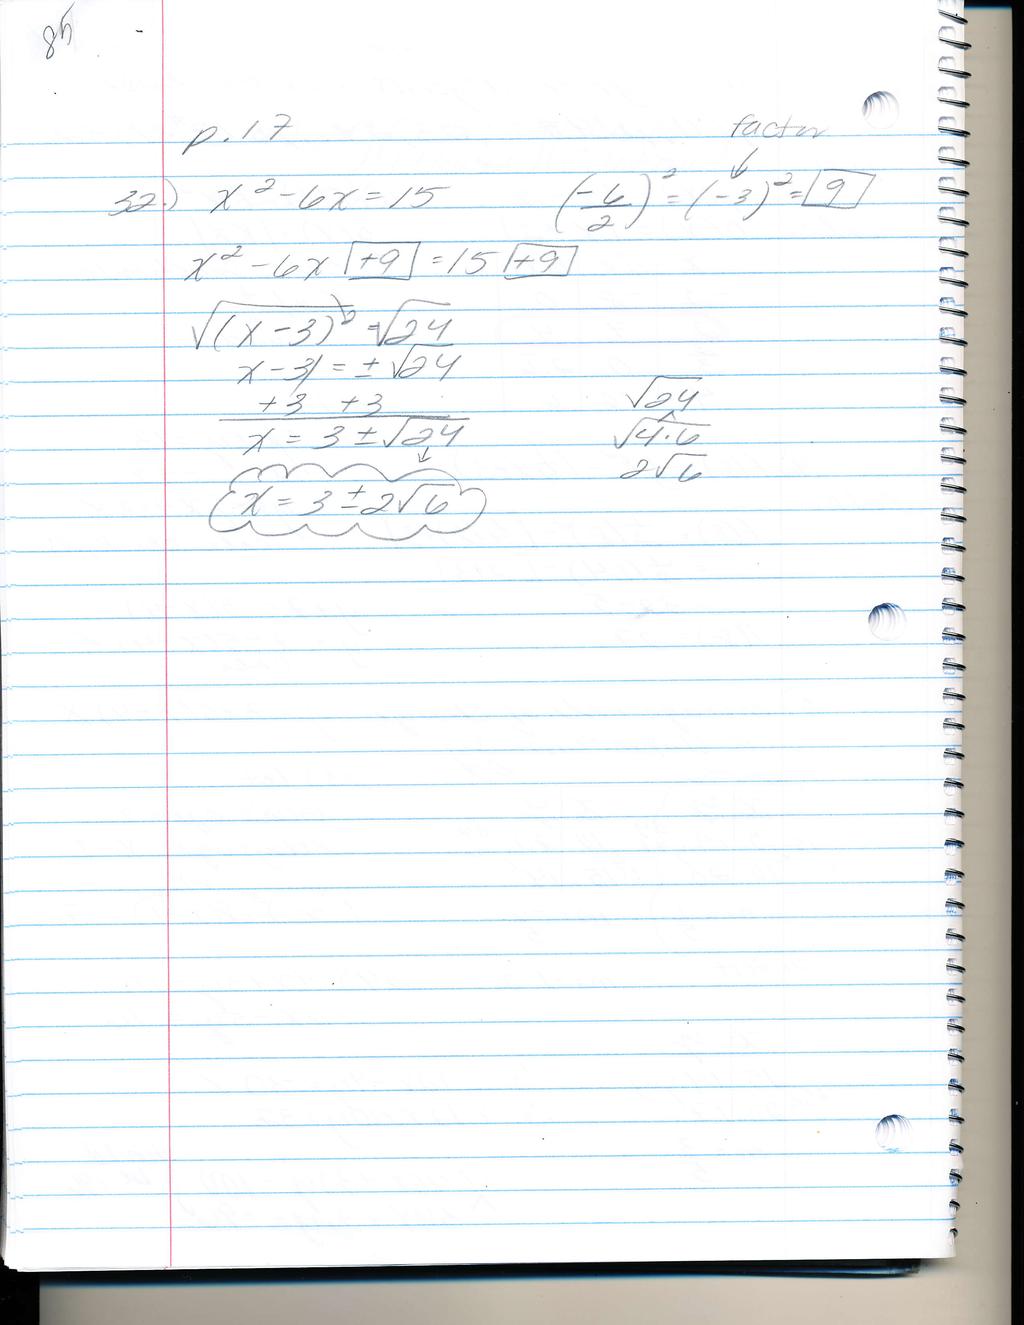 p. 17
factor
32.) x² - 6x = 15 (-6/2)² = (-3)² = 9
x² - 6x +9 = 15 +9
√(x - 3)² = √24
x - 3 = ± √24
+3 +3
√24
x = 3 ± √24
√4·6
2√6
x = 3 ± 2√6